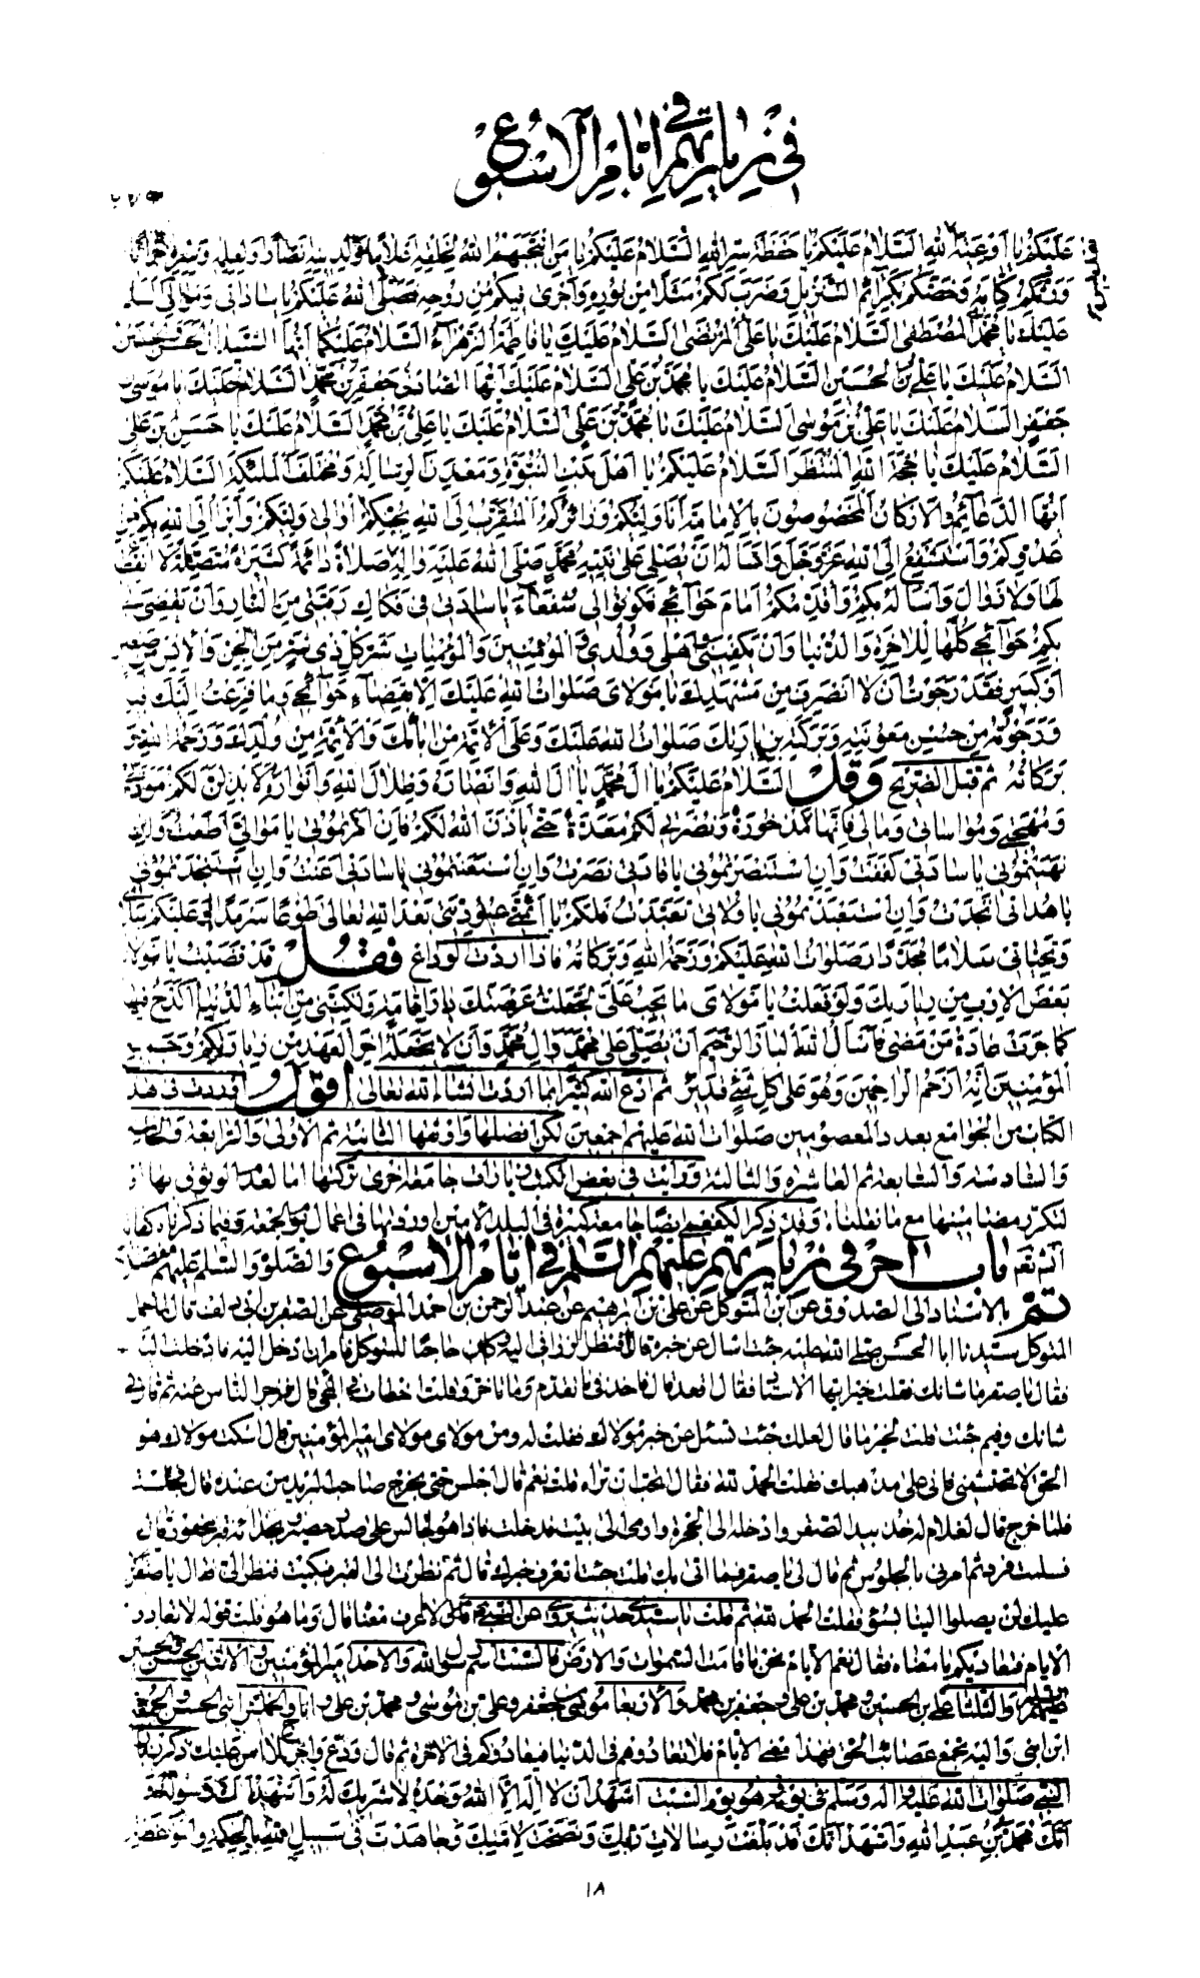 في زيارتهم في ايام الاسبوع
عليكم يا اوعية الله السلام عليكم يا حفظة سر الله السلام عليكم يا من انتجبهم الله
وحصكم بكرائم التنزيل وضرب لكم مثلا من نوره واجرى فيكم من روحه فصلى الله عليكم يا ساداتي
عليك يا محمد المصطفى السلام عليك يا علي المرتضى السلام عليك يا فاطمة الزهراء السلام عليكما ايها السيدان الحسن والحسين
السلام عليك يا علي بن الحسين السلام عليك يا محمد بن علي السلام عليك ايها الصادق جعفر بن محمد السلام عليك يا موسى بن
جعفر السلام عليك يا علي بن موسى السلام عليك يا محمد بن علي السلام عليك يا علي بن محمد السلام عليك يا حسن بن علي
السلام عليك يا حجة الله المنتظر السلام عليكم يا اهل بيت النبوة ومعدن الرسالة ومختلف الملئكة السلام عليكم
ايها الدعائم والاركان المخصوصون بالامامة انا وليكم وزائركم المتقرب الى الله بحبكم اوالي وليكم وابرأ الى الله بكم من
عدوكم واستشفع الى الله عز وجل واساله ان يصلي على نبيه محمد صلى الله عليه واله صلاة دائمة كثيرة متصلة لا انقطاع
لها ولا زوال واساله بكم واقدمكم امام حوائجي فكونوا لي شفعاء يا ساداتي في فكاك رقبتي من النار وان تقضى
بكم حوائجي كلها للاخرة والدنيا وان تكفيني واهلي وولدي والمؤمنين والمؤمنات شر كل ذي شر من الجن والانس من صغير
او كبير فقد رجوت ان لا انصرف من مشهدك يا مولاي صلوات الله عليك الا بقضاء حوائجي وما فزعت اليك فيه
ورجوته من حسن معونته وبركة زيارتك صلوات الله عليك وعلى الائمة من ابائك والائمة من ولدك ورحمة الله و
بركاته ثم قبل الضريح وقل السلام عليكم يا ال محمد يا ال الله وانصاره وظلال الله وانواره لابذلن لكم مودتي
ومهجتي ومواساتي ومالي فانها مذخورة ونصرتي لكم معدة حتى ياذن الله لكم فان امرتموني يا موالي اطعت وان
نهيتموني يا ساداتي كففت وان استنصرتموني يا قادتي نصرت وان استعنتموني يا ساداتي اعنت وان استنجدتموني
يا هداتي انجدت وان استعبدتموني يا ولاتي تعبدت فلكم يا ائمتي عبوديتي بعد الله تعالى طوعا سرمدا وعليكم سلامي
وتحياتي سلاما مجددا وصلوات الله عليكم ورحمة الله وبركاته فاذا اردت الوداع فقل قد قضيت يا مولاي
بعض الارب من زيارتك ولو فعلت يا مولاي ما يجب علي لجعلت عرصتك دار اقامتي ولكنني من ابناء الدنيا اكدح فيها
كما جرت عادة من مضى فاسال الله البار الرحيم ان يصلي على محمد وال محمد وان لا يجعله اخر العهد من زيارتكم وجميع
المؤمنين انه ارحم الراحمين وهو على كل شيء قدير ثم ادع الله كثيرا بما اردت انشاء الله تعالى اقول اوردت في هذا
الكتاب من الجوامع بعدد المعصومين صلوات الله عليهم اجمعين لكن افضلها واوثقها الثانية ثم الاولى والرابعة والخامسة
والسادسة والسابعة ثم العاشرة والثالثة ورايت في بعض الكتب زيارات جامعة اخرى تركتها اما لعدم الوثوق بها او
لتكرر مضامينها مع ما نقلنا وقد ذكر الكفعمي ايضا جامعة كبيرة في البلد الامين اوردتها في اعمال يوم الجمعة وفيما ذكرناه كفاية
انشاء الله باب اخر في زيارتهم عليهم السلام في ايام الاسبوع والصلوة والسلام عليهم مفصلا
تم بالاسناد الى الصدوق عن ابن المتوكل عن علي بن ابرهيم عن عبد الله بن احمد الموصلي عن الصقر بن ابي دلف قال لما حمل
المتوكل سيدنا ابا الحسن صلى الله عليه جئت اسال عن خبره قال فنظر الزرافي اليه وكان حاجبا للمتوكل فامر ان ادخل اليه فادخلت اليه
فقال يا صقر ما شانك فقلت خير ايها الاستاد فقال اقعد قال فاخذني ما تقدم وما تاخر وقلت اخطات في المجيء قال فوحى الناس عنه ثم قال لي
شانك وفيم جئت قلت لخير ما قال لعلك جئت تسئل عن خبر مولاك فقلت له ومن مولاي مولاي امير المؤمنين قال اسكت مولاك هو
الحق لا تحتشمني فاني على مذهبك فقلت الحمد لله فقال اتحب ان تراه قلت نعم قال اجلس حتى يخرج صاحب البريد من عنده قال فجلست
فلما خرج قال لغلام له خذ بيد الصقر وادخله الى الحجرة واومى الى بيت فدخلت فاذا هو جالس على صدر حصير بحذائه قبر محفور قال
فسلمت فرد ثم امرني بالجلوس ثم قال لي يا صقر فما اتى بك قلت جئت اتعرف خبرك قال ثم نظرت الى القبر فبكيت فنظر الي فقال يا صقر لا
عليك لن يصلوا الينا بسوء فقلت الحمد لله ثم قلت يا سيدي حديث يروى عن النبي لا اعرف معناه قال وما هو قلت قوله لا تعادوا
الايام فتعاديكم ما معناه فقال نعم الايام نحن ما قامت السموات والارض فالسبت اسم رسول الله والاحد امير المؤمنين والاثنين الحسن والحسين
والثلثا علي بن الحسين ومحمد بن علي وجعفر بن محمد والاربعا موسى بن جعفر وعلي بن موسى ومحمد بن علي وانا والخميس ابني الحسن والجمعة
ابن ابني واليه تجمع عصابة الحق فهذا معنى الايام فلا تعادوهم في الدنيا فيعادوكم في الاخرة ثم قال ودع واخرج فلا امن عليك ذكر زيارة
النبي صلوات الله عليه واله وسلم في يومه وهو يوم السبت اشهد ان لا اله الا الله وحده لا شريك له واشهد انك رسوله و
انك محمد بن عبد الله واشهد انك قد بلغت رسالات ربك ونصحت لامتك وجاهدت في سبيل الله بالحكمة والموعظة
١٨